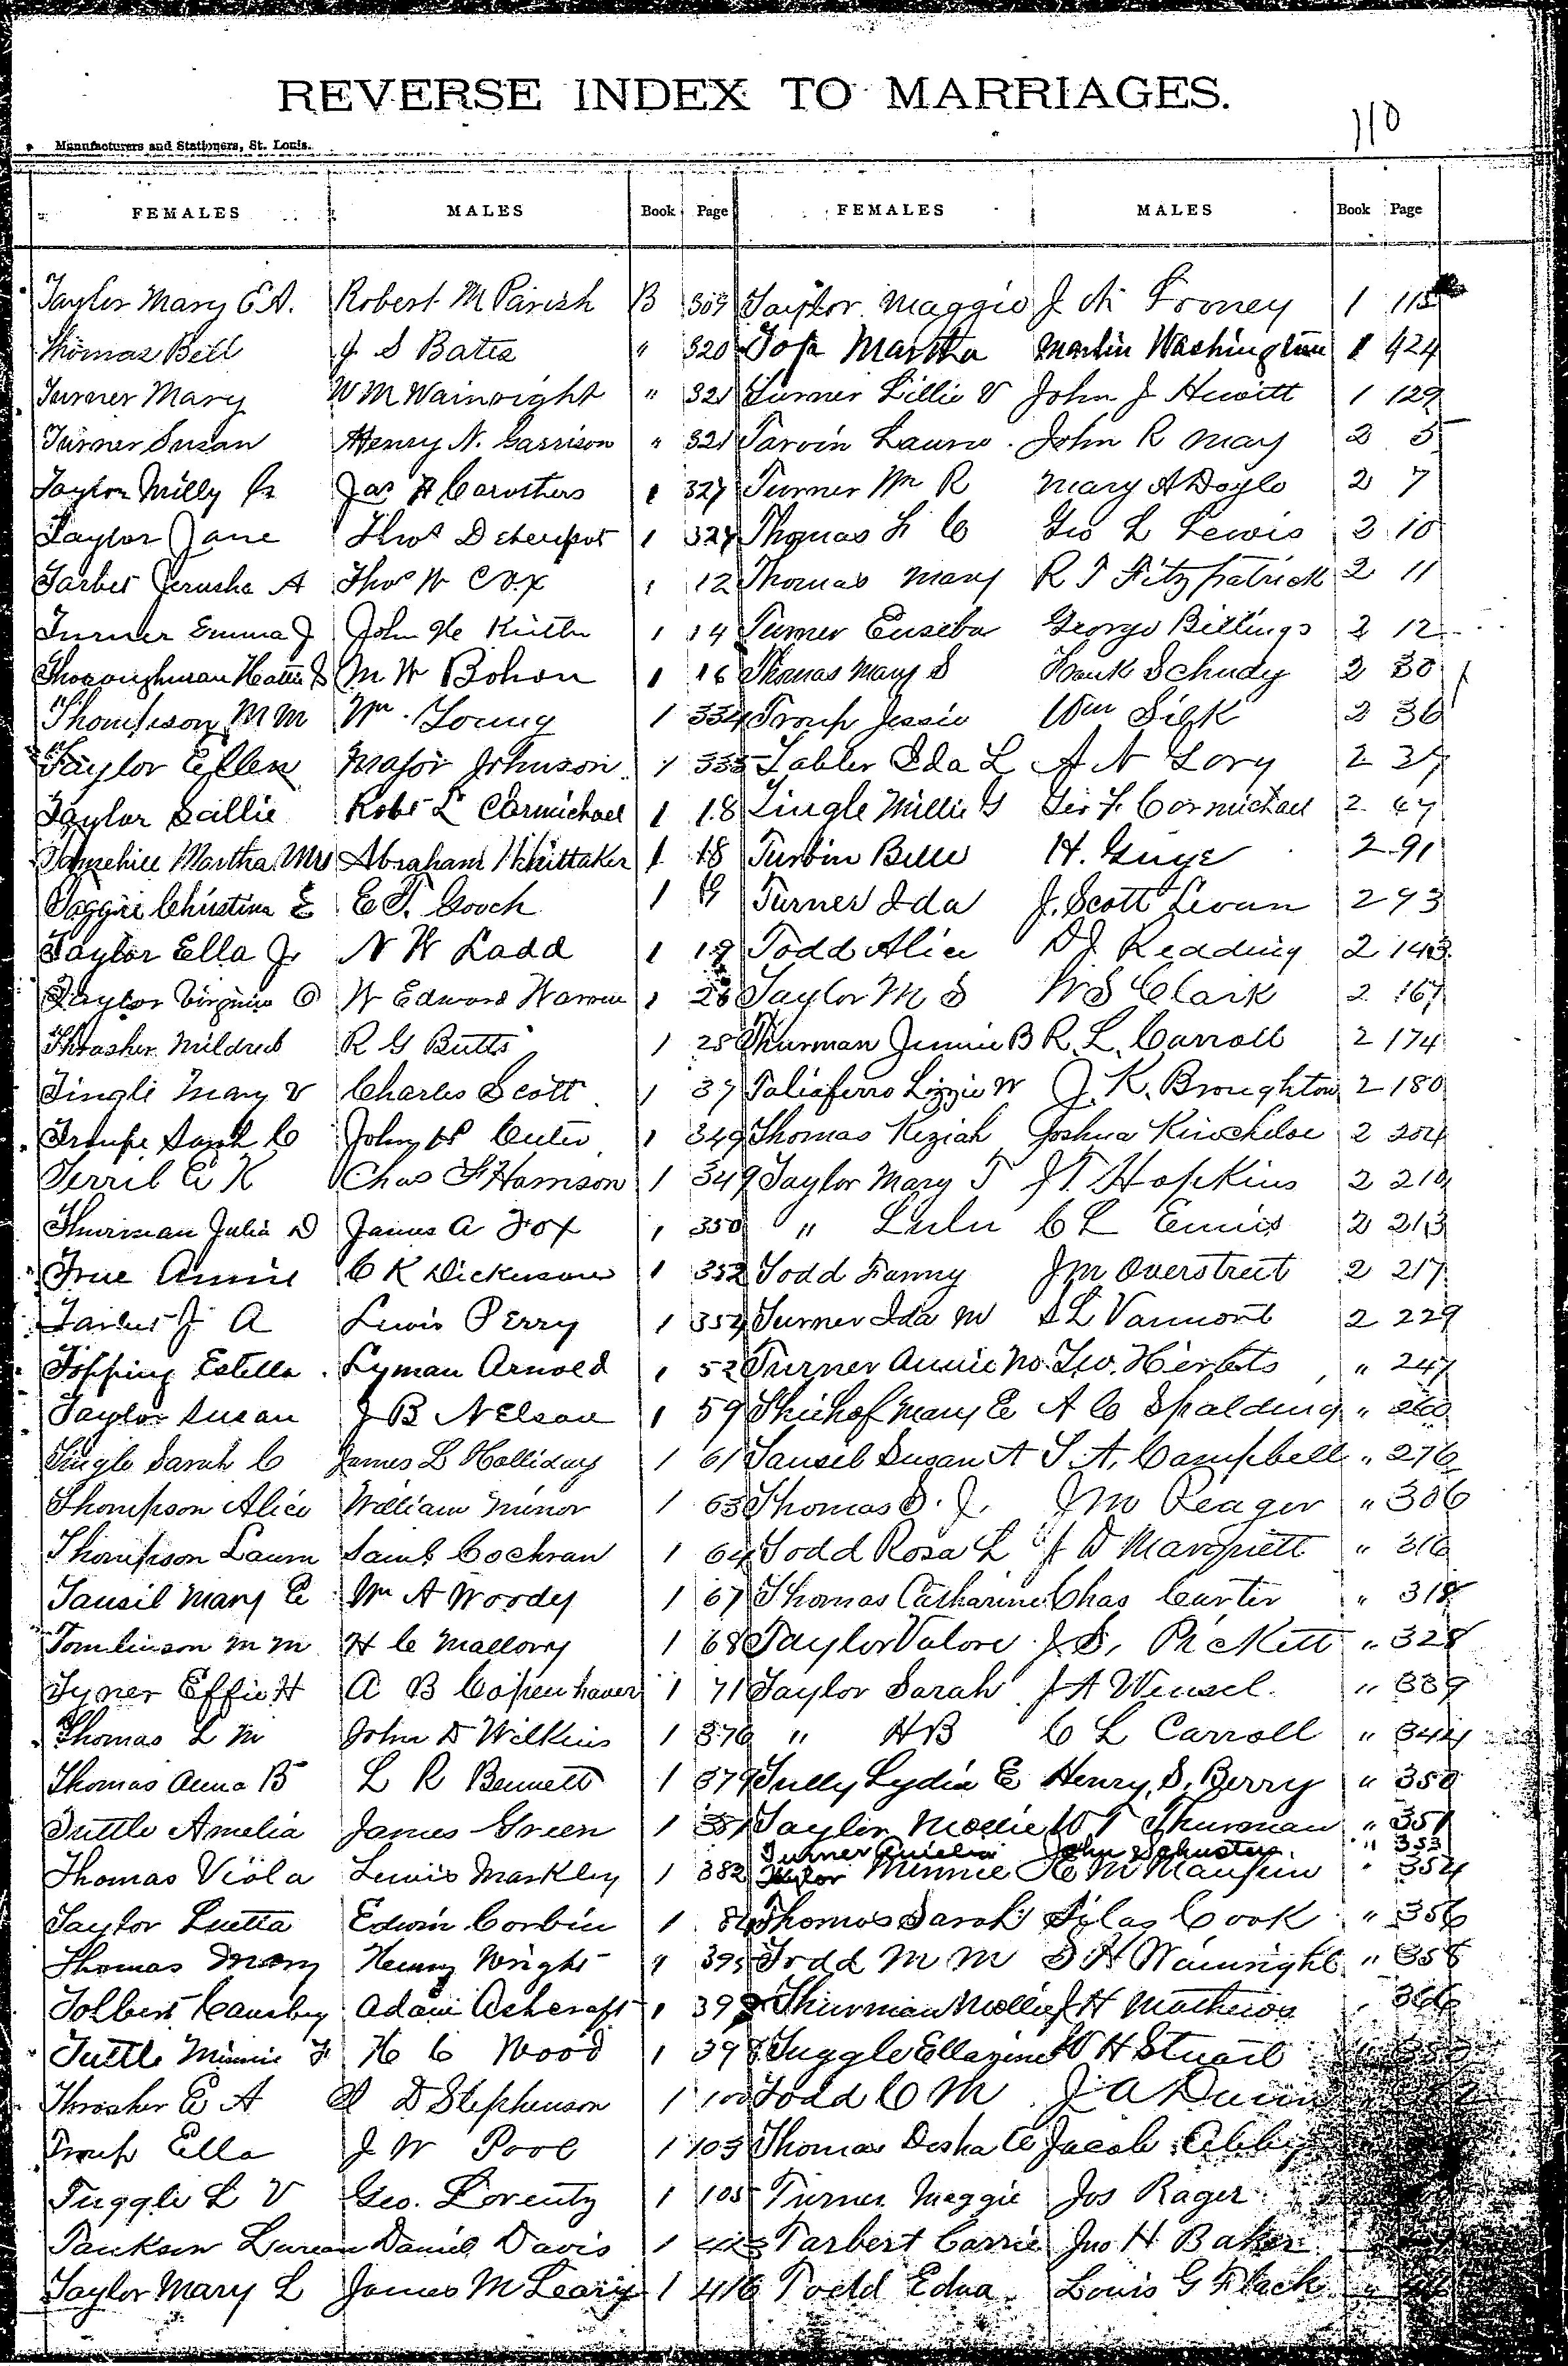 REVERSE INDEX TO MARRIAGES.
110
Manufacturers and Stationers, St. Louis.
FEMALES MALES Book Page FEMALES MALES Book Page
Taylor Mary E A. Robert M Parish B 309 Taylor Maggie J M Forney 1 115
Thomas Bell J S Bates " 320 Top Martha Martin Washington 1 424
Turner Mary W M Wainright " 321 Turner Lillie V John J Hewitt 1 129
Turner Susan Henry N. Garrison " 321 Tarvin Laura John R May 2 5
Taylor Milly Jas A Caruthers 1 327 Turner Wm R Mary A Doyle 2 7
Taylor Jane Thos 1 327 Thomas L C Geo L Lewis 2 10
Tarbet Jerusha A Thos W Cox 1 12 Thomas Mary R T Fitzpatrick 2 11
Turner Emma J John 1 14 Turner Euseba George Billings 2 12
Thoroughman Hattie M W Bohon 1 16 Thomas Mary S Frank Schudy 2 30
Thompson M M Wm. Young 1 334 Troup Jessie Wm Silk 2 36
Taylor Ellen Major Johnson 1 335 Tabler Ida L A N Lory 2 37
Taylor Sallie Robt L Carmichael 1 18 Tingle Millie G Geo F Cormichael 2 47
Tannehill Martha Mrs Abraham Whittaker 1 18 Turbin Belle H. Guye 2 91
Christina E E T. Gooch 1 19 Turner Ida J. Scott Levan 2 93
Taylor Ella J. N W Ladd 1 19 Todd Alice D J Redding 2 143
Taylor Virginia O W Edward Warren 1 26 Taylor M S W S Clark 2 167
Thrasher Mildred R G Butts 1 28 Thurman Jennie B R. L. Carroll 2 174
Tingle Mary V Charles Scott 1 37 Taliaferro Lizzie W J. K. Broughton 2 180
Troupe Sarah C John P 1 349 Thomas Keziah Joshua Kincheloe 2 204
Terril E K Chas F Harrison 1 349 Taylor Mary T J T Hopkins 2 210
Thurman Julia D James A Fox 1 350 " Lulu C L Ennis 2 213
True Annie C K Dickerson 1 352 Todd Fanny J M Overstreet 2 217
J A Lewis Perry 1 352 Turner Ida M S L Vanmont 2 229
Topping Estella Lyman Arnold 1 52 Turner Annie M. Geo. " 247
Taylor Susan J B Nelson 1 59 Mary E A C Spalding " 260
Tingle Sarah C James L Holliday 1 61 Tansil Susan A T. A. Campbell " 276
Thompson Alice William Minor 1 63 Thomas S. J. J M Reager " 306
Thompson Laura Saml Cochran 1 64 Todd Rosa L J D Marquett " 316
Tansil Mary E Wm A Woody 1 67 Thomas Catharine Chas Carter " 318
Tomlinson M M H C Mallory 1 68 Taylor Valore J. S. Pickett " 328
Tyner Effie H A B Copenhaver 1 71 Taylor Sarah J A Wensel. " 339
Thomas L M John D Wilkins 1 376 " H B C L Carroll " 344
Thomas Anna B L R Bennett 1 379 Tully Lydia E Henry S. Berry " 350
Tuttle Amelia James Green 1 381 Taylor Mollie W T Thurman " 351
Turner Amelia John Schuster " 353
Thomas Viola Lewis Markley 1 382 Taylor Minnie H M Maupin " 354
Taylor Luetta Edwin Corbin 1 84 Thomas Sarah Silas Cook " 356
Thomas Mary Henry Wright " 395 Todd M M S H Wainright " 358
Tolbert Adam Ashcraft 1 39 Thurman Mollie J H Mathews 366
Tuttle Minnie F H C Wood 1 398 Tuggle Ellazine W H Stuart
Thrasher E A D Stephenson 1 100 Todd C M J A Dunn
Troup Ella J W Pool 1 103 Thomas Desha Jacob
Tuggle L V Geo. Lorentz 1 105 Turner Maggie Jos Rager
Daniel Davis 1 Tarbert Carrie Jno H Baker
Taylor Mary L James M Leary 1 416 Todd Edna Louis G Flack